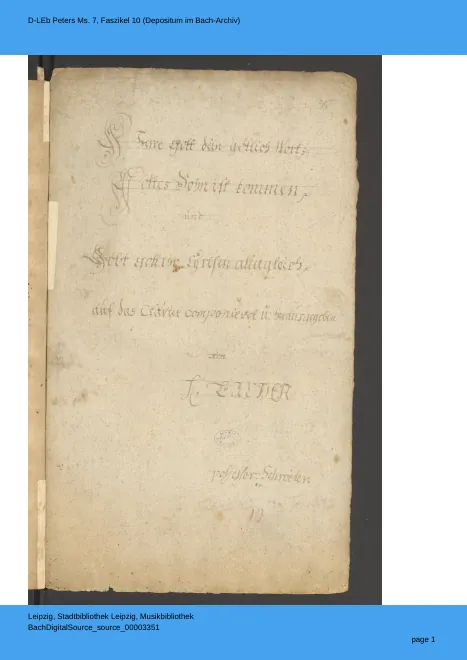 D-LEb Peters Ms. 7, Faszikel 10 (Depositum im Bach-Archiv)
Herre Gott dein götlich Wort,
Gottes Sohn ist kommen,
und
Lobt Gott ihr Christen allzugleich,
auf das Clavier componieret u.
von
poss. Schröter.
Leipzig, Stadtbibliothek Leipzig, Musikbibliothek
BachDigitalSource_source_00003351
page 1